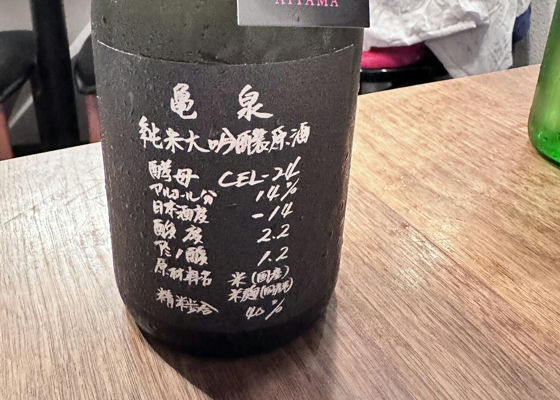 AIYAMA
亀泉
純米大吟醸原酒
酵母 CEL-24
アルコール分 14%
日本酒度 -14
酸度 2.2
アミノ酸 1.2
原材料名 米(国産)
米麹(国産米)
精米歩合 40%